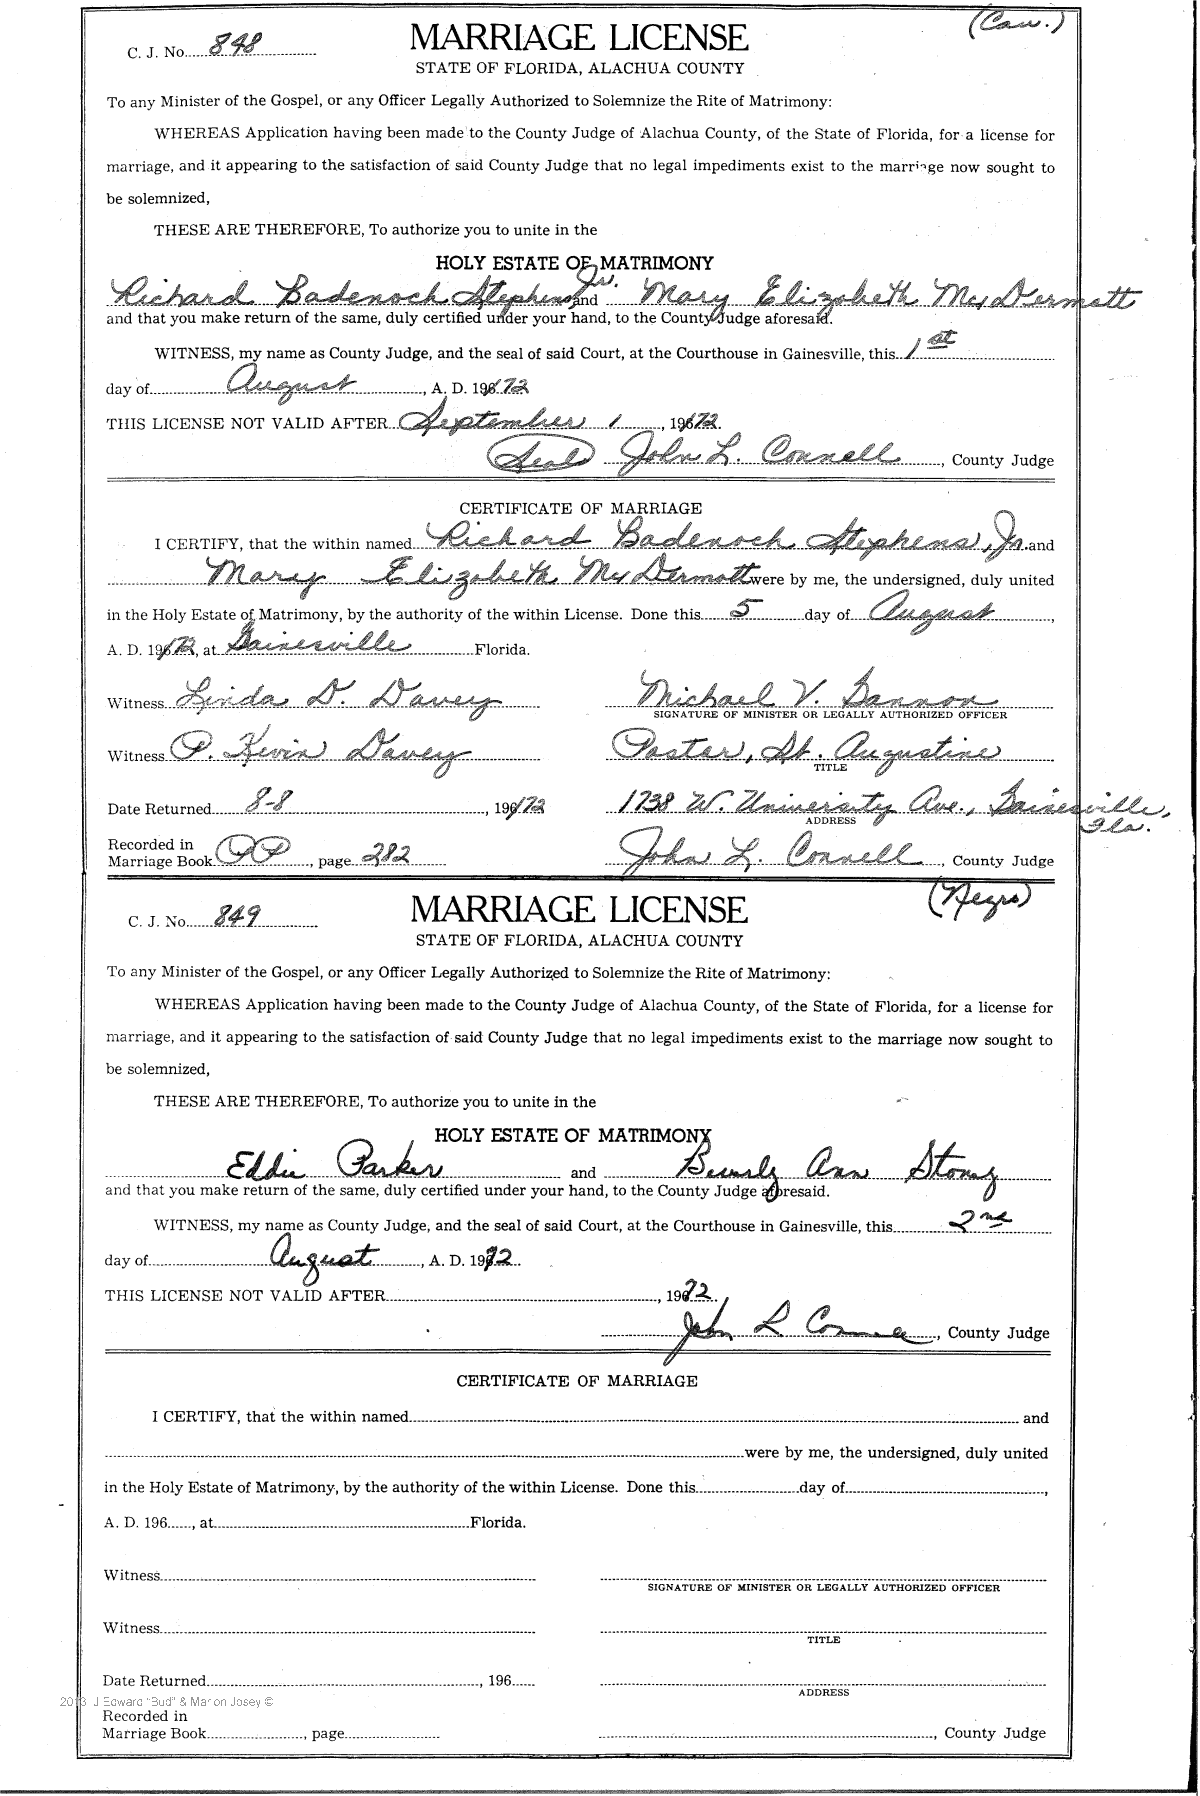 (Cau.)
C. J. No. 848 MARRIAGE LICENSE
STATE OF FLORIDA, ALACHUA COUNTY
To any Minister of the Gospel, or any Officer Legally Authorized to Solemnize the Rite of Matrimony:
WHEREAS Application having been made to the County Judge of Alachua County, of the State of Florida, for a license for
marriage, and it appearing to the satisfaction of said County Judge that no legal impediments exist to the marriage now sought to
be solemnized,
THESE ARE THEREFORE, To authorize you to unite in the
HOLY ESTATE OF MATRIMONY
Richard Badenoch Stephens Jr. and Mary Elizabeth McDermott
and that you make return of the same, duly certified under your hand, to the County Judge aforesaid.
WITNESS, my name as County Judge, and the seal of said Court, at the Courthouse in Gainesville, this 1st
day of August, A. D. 1972
THIS LICENSE NOT VALID AFTER September 1, 1972.
(Seal) John L. Connell, County Judge
CERTIFICATE OF MARRIAGE
I CERTIFY, that the within named Richard Badenoch Stephens, Jr. and
Mary Elizabeth McDermott were by me, the undersigned, duly united
in the Holy Estate of Matrimony, by the authority of the within License. Done this 5 day of August,
A. D. 1972, at Gainesville Florida.
Witness Linda D. Davey Michael V. Gannon
SIGNATURE OF MINISTER OR LEGALLY AUTHORIZED OFFICER
Witness P. Kevin Davey Pastor, St. Augustine
TITLE
Date Returned 8-8, 1972 1738 W. University Ave., Gainesville, Fla.
ADDRESS
Recorded in
Marriage Book PP, page 282 John L. Connell, County Judge
(Negro)
C. J. No. 849 MARRIAGE LICENSE
STATE OF FLORIDA, ALACHUA COUNTY
To any Minister of the Gospel, or any Officer Legally Authorized to Solemnize the Rite of Matrimony:
WHEREAS Application having been made to the County Judge of Alachua County, of the State of Florida, for a license for
marriage, and it appearing to the satisfaction of said County Judge that no legal impediments exist to the marriage now sought to
be solemnized,
THESE ARE THEREFORE, To authorize you to unite in the
HOLY ESTATE OF MATRIMONY
Eddie Parker and Beverly Ann Stoney
and that you make return of the same, duly certified under your hand, to the County Judge aforesaid.
WITNESS, my name as County Judge, and the seal of said Court, at the Courthouse in Gainesville, this 2nd
day of August, A. D. 1972.
THIS LICENSE NOT VALID AFTER, 1972.
John L. Connell, County Judge
CERTIFICATE OF MARRIAGE
I CERTIFY, that the within named and
were by me, the undersigned, duly united
in the Holy Estate of Matrimony, by the authority of the within License. Done this day of,
A. D. 196, at Florida.
Witness
SIGNATURE OF MINISTER OR LEGALLY AUTHORIZED OFFICER
Witness
TITLE
Date Returned, 196
ADDRESS
2013 J Edward "Bud" & Marion Josey ©
Recorded in
Marriage Book, page, County Judge